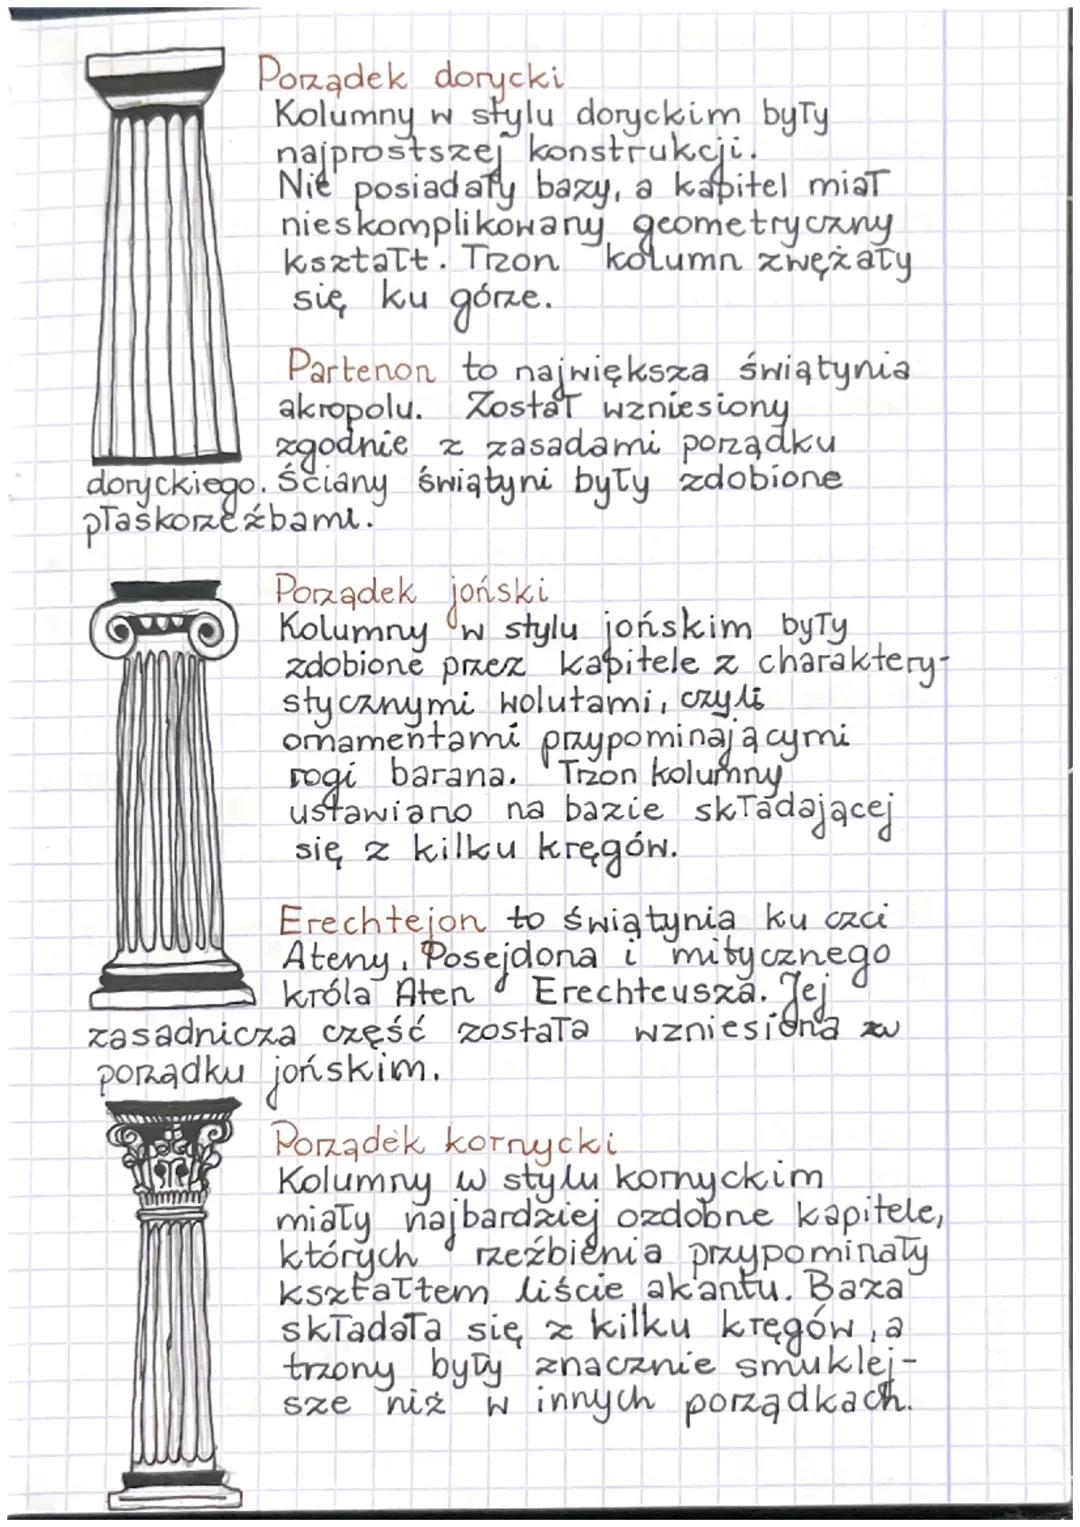 Porządek dorycki
Kolumny w stylu doryckim były
najprostszej konstrukcji.
Nie posiadały bazy, a kapitel miał
nieskomplikowany geometryczny
kształt. Trzon kolumn zwężały
się ku górze.
Partenon to największa świątynia
akropolu. Został wzniesiony
zgodnie z zasadami porządku
doryckiego. Ściany świątyni były zdobione
płaskorzeźbami.
Porządek joński
Kolumny w stylu jońskim były
zdobione przez kapitele z charaktery-
stycznymi wolutami, czyli
ornamentami przypominającymi
rogi barana. Trzon kolumny
ustawiano na bazie składającej
się z kilku kręgów.
Erechtejon to świątynia ku czci
Ateny, Posejdona i mitycznego
króla Aten Erechteusza. Jej
zasadnicza część została wzniesiona w
porządku jońskim.
Porządek kornycki
Kolumny w stylu kornyckim
miały najbardziej ozdobne kapitele,
których rzeźbienia przypominały
kształtem liście akantu. Baza
składała się z kilku kręgów, a
trzony były znacznie smuklej-
sze niż w innych porządkach.